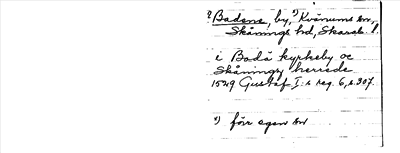 ?Badene, by, ¹) Kvänums sn,
Skånings hd, Skarab. l.
i Badä kyrkeby oc
Skåningx herrede
1549 Gustaf I:s reg. 6, s. 307.
¹) förr egen sn